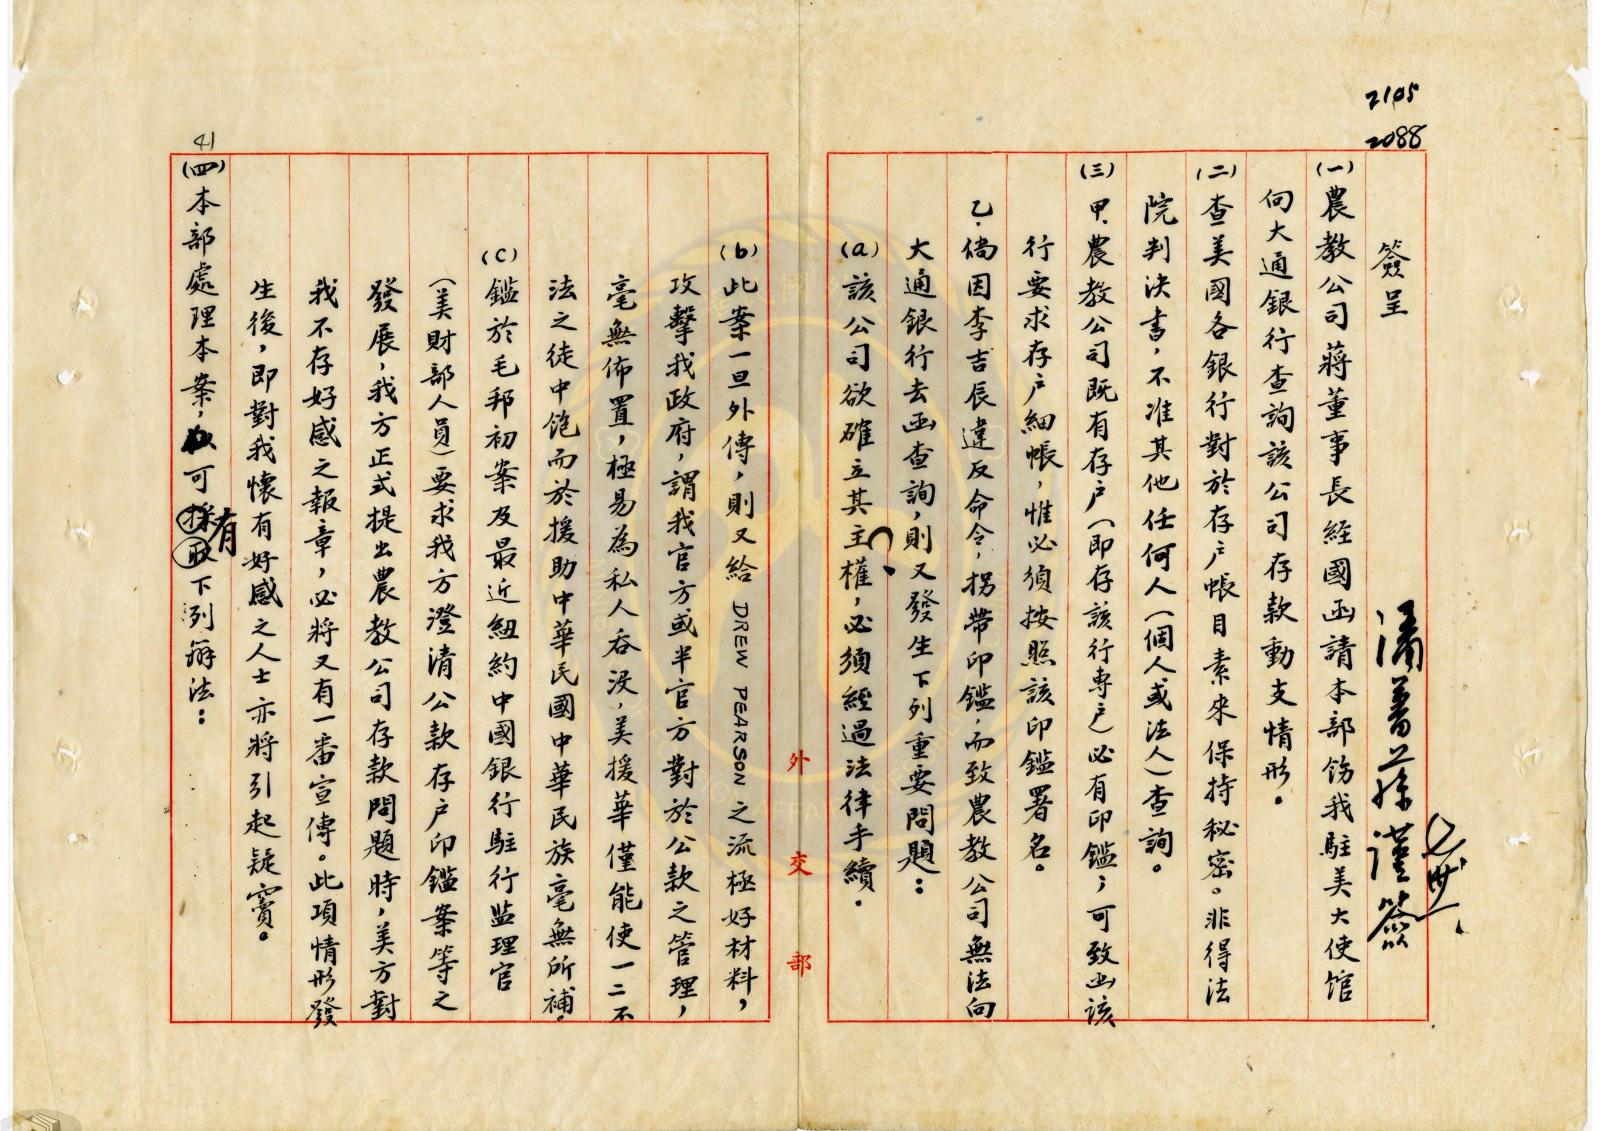 2105
2088
簽呈
潘蓀謹簽
(一)農教公司蔣董事長經國函請本部飭我駐美大使館
向大通銀行查詢該公司存款動支情形。
(二)查美國各銀行對於存戶帳目素來保持秘密。非得法
院判決書,不准其他任何人(個人或法人)查詢。
(三)甲、農教公司既有存戶(即存該行專戶)必有印鑑;可致函該
行要求存戶細帳,惟必須按照該印鑑署名。
乙、倘因李吉辰違反命令,拐帶印鑑,而致農教公司無法向
大通銀行去函查詢,則又發生下列重要問題:
(a)該公司欲確立其主權,必須經過法律手續。
外交部
(b)此案一旦外傳,則又給 DREW PEARSON 之流極好材料,
攻擊我政府,謂我官方或半官方對於公款之管理,
毫無佈置,極易為私人吞沒,美援華僅能使一二不
法之徒中飽而於援助中華民國中華民族毫無所補。
(c)鑑於毛邦初案及最近紐約中國銀行駐行監理官
(美財部人員)要求我方澄清公款存戶印鑑案等之
發展,我方正式提出農教公司存款問題時,美方對
我不存好感之報章,必將又有一番宣傳。此項情形發
生後,即對我懷有好感之人士亦將引起疑竇。
41
(四)本部處理本案,可採取有下列辦法: